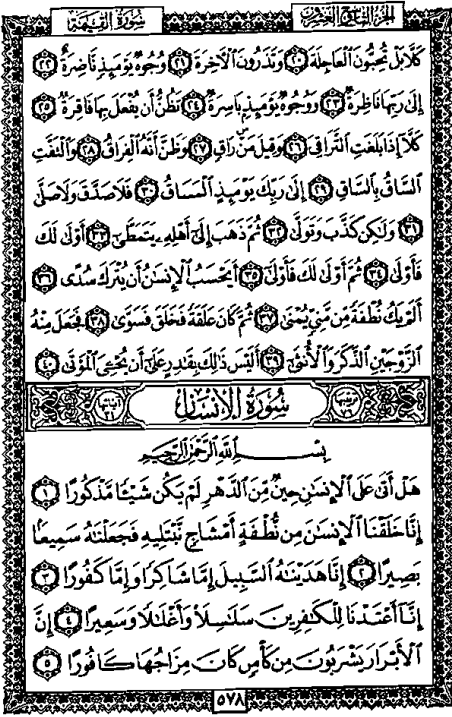 الجزء التاسع والعشرون سورة القيمة
كَلَّا بَلْ تُحِبُّونَ ٱلْعَاجِلَةَ ٢٠ وَتَذَرُونَ ٱلْءَاخِرَةَ ٢١ وُجُوهٌ يَوْمَئِذٍ نَّاضِرَةٌ ٢٢
إِلَىٰ رَبِّهَا نَاظِرَةٌ ٢٣ وَوُجُوهٌ يَوْمَئِذٍۭ بَاسِرَةٌ ٢٤ تَظُنُّ أَن يُفْعَلَ بِهَا فَاقِرَةٌ ٢٥
كَلَّآ إِذَا بَلَغَتِ ٱلتَّرَاقِىَ ٢٦ وَقِيلَ مَنْ ۜ رَاقٍ ٢٧ وَظَنَّ أَنَّهُ ٱلْفِرَاقُ ٢٨ وَٱلْتَفَّتِ
ٱلسَّاقُ بِٱلسَّاقِ ٢٩ إِلَىٰ رَبِّكَ يَوْمَئِذٍ ٱلْمَسَاقُ ٣٠ فَلَا صَدَّقَ وَلَا صَلَّىٰ
٣١ وَلَٰكِن كَذَّبَ وَتَوَلَّىٰ ٣٢ ثُمَّ ذَهَبَ إِلَىٰٓ أَهْلِهِۦ يَتَمَطَّىٰٓ ٣٣ أَوْلَىٰ لَكَ
فَأَوْلَىٰ ٣٤ ثُمَّ أَوْلَىٰ لَكَ فَأَوْلَىٰٓ ٣٥ أَيَحْسَبُ ٱلْإِنسَٰنُ أَن يُتْرَكَ سُدًى ٣٦
أَلَمْ يَكُ نُطْفَةً مِّن مَّنِىٍّ يُمْنَىٰ ٣٧ ثُمَّ كَانَ عَلَقَةً فَخَلَقَ فَسَوَّىٰ ٣٨ فَجَعَلَ مِنْهُ
ٱلزَّوْجَيْنِ ٱلذَّكَرَ وَٱلْأُنثَىٰٓ ٣٩ أَلَيْسَ ذَٰلِكَ بِقَٰدِرٍ عَلَىٰٓ أَن يُحْۦِىَ ٱلْمَوْتَىٰ ٤٠
ترتيبها ٧٦ سُورَةُ الإِنسَانِ آياتها ٣١
بِسْمِ ٱللَّهِ ٱلرَّحْمَٰنِ ٱلرَّحِيمِ
هَلْ أَتَىٰ عَلَى ٱلْإِنسَٰنِ حِينٌ مِّنَ ٱلدَّهْرِ لَمْ يَكُن شَيْـًٔا مَّذْكُورًا ١
إِنَّا خَلَقْنَا ٱلْإِنسَٰنَ مِن نُّطْفَةٍ أَمْشَاجٍ نَّبْتَلِيهِ فَجَعَلْنَٰهُ سَمِيعًۢا
بَصِيرًا ٢ إِنَّا هَدَيْنَٰهُ ٱلسَّبِيلَ إِمَّا شَاكِرًا وَإِمَّا كَفُورًا ٣
إِنَّآ أَعْتَدْنَا لِلْكَٰفِرِينَ سَلَٰسِلَا۟ وَأَغْلَٰلًا وَسَعِيرًا ٤ إِنَّ
ٱلْأَبْرَارَ يَشْرَبُونَ مِن كَأْسٍ كَانَ مِزَاجُهَا كَافُورًا ٥
٥٧٨